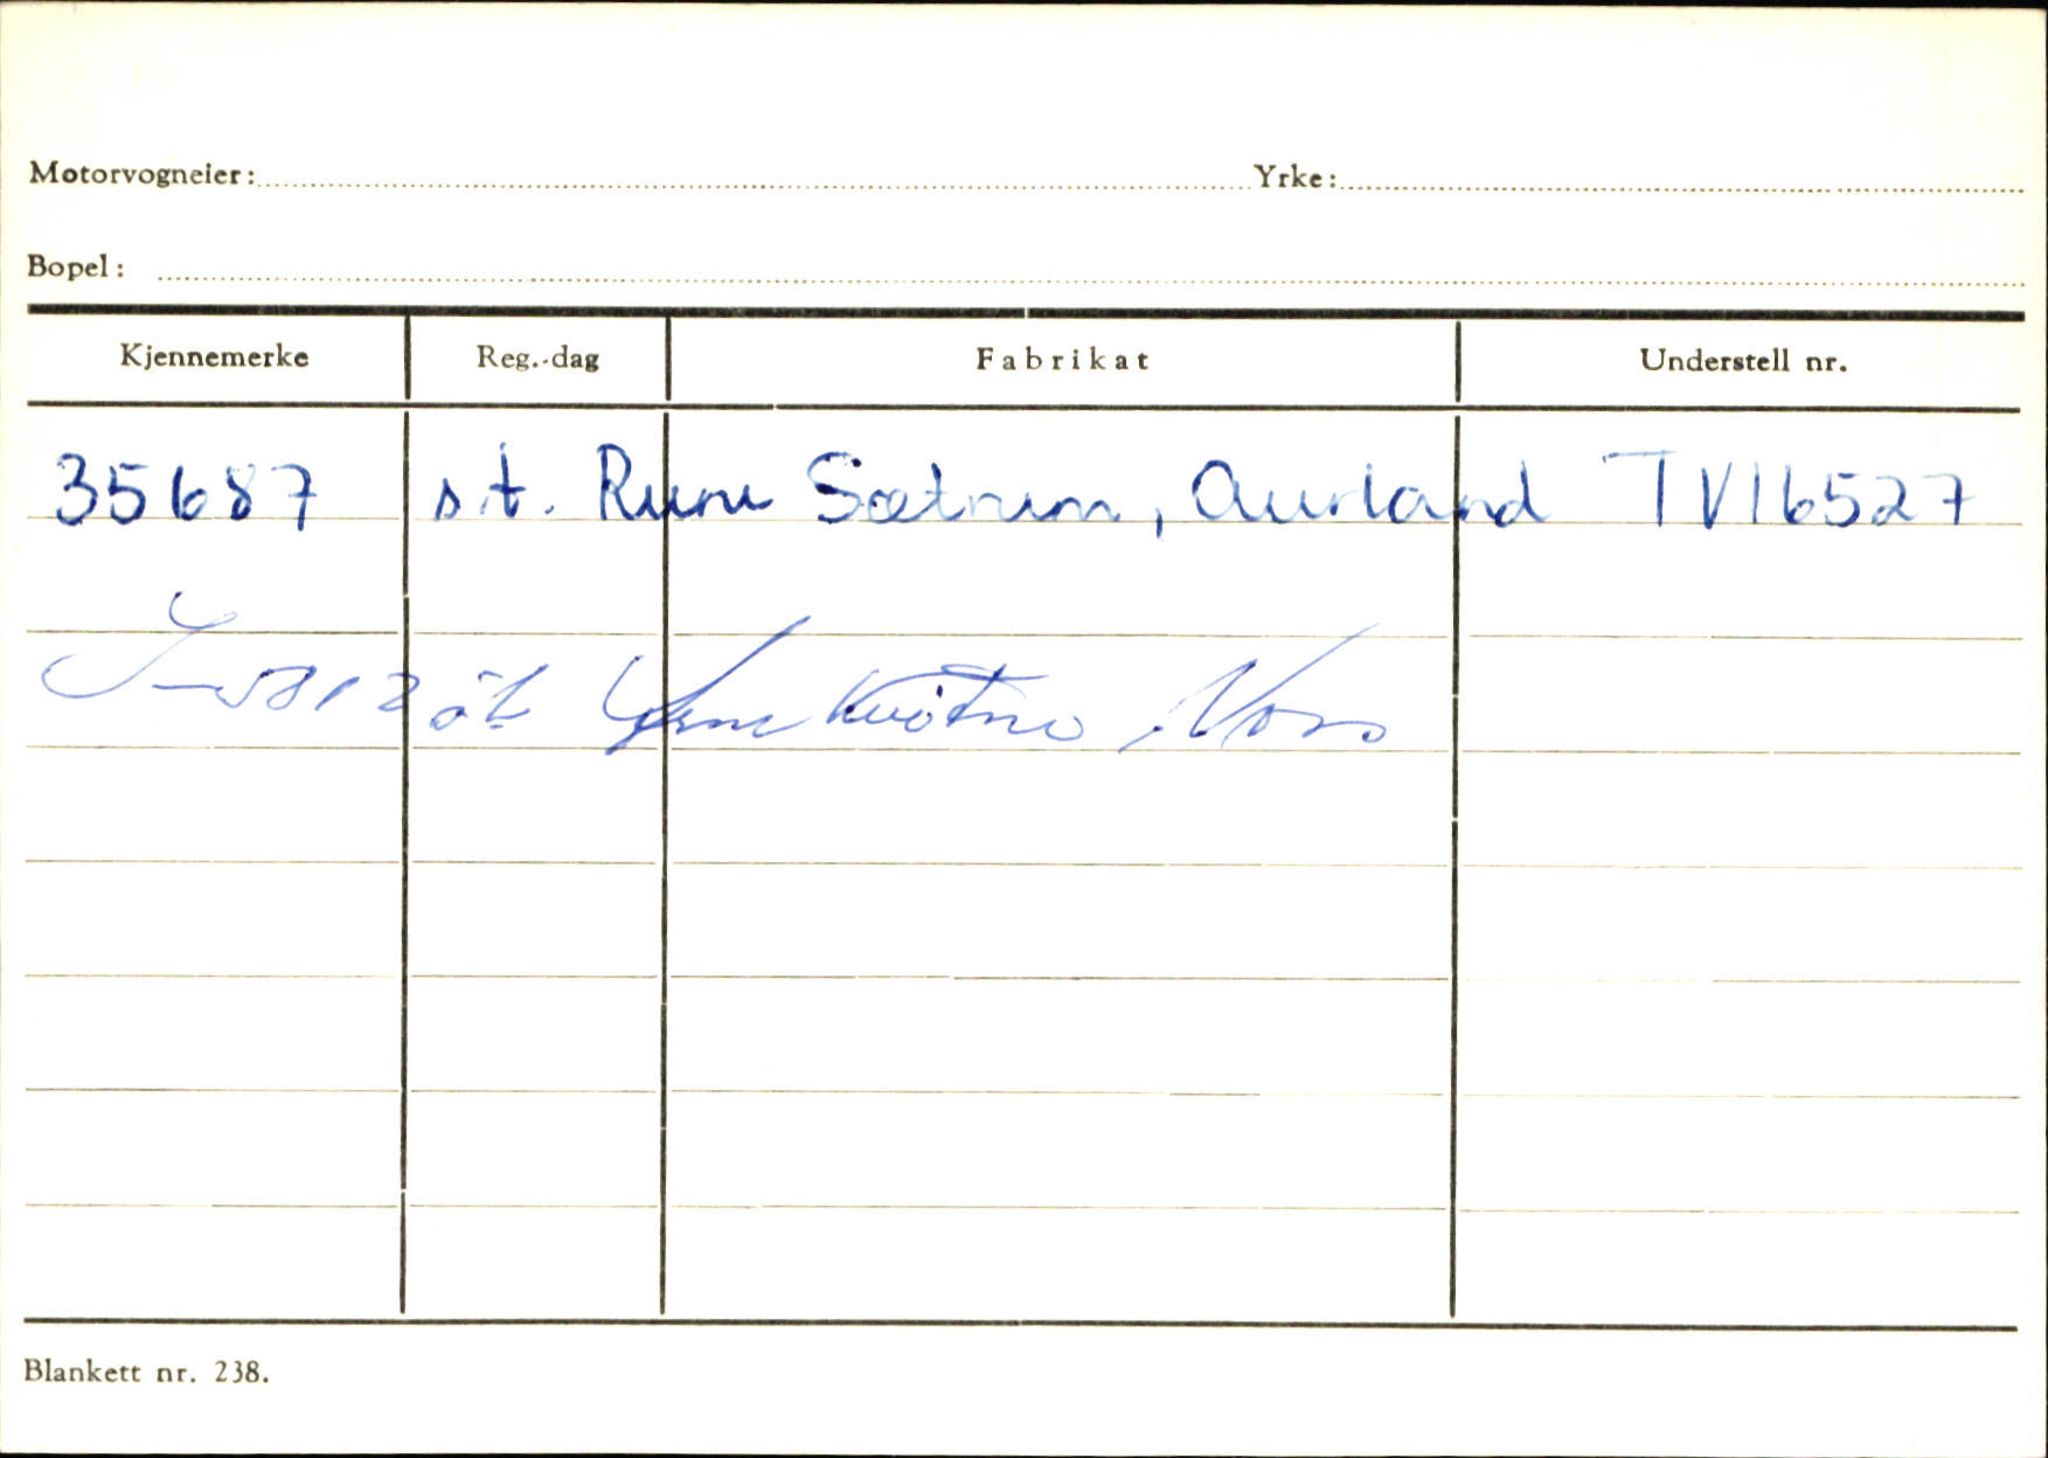 Motorvogneier: Yrke:
Bopel:
Kjennemerke Reg.-dag Fabrikat Understell nr.
35687 s.t. Rune Sætrum, Aurland TV16527
Voss
Blankett nr. 238.